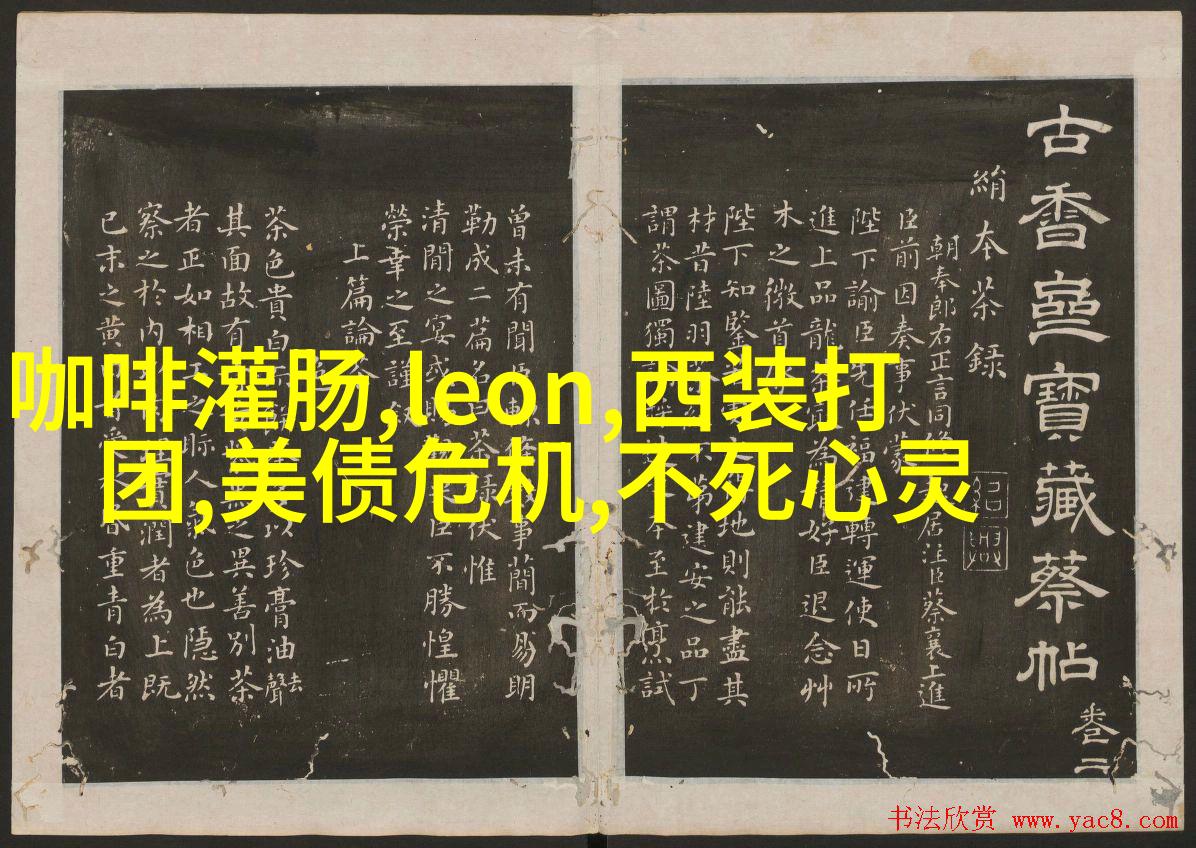 咖啡灌肠,leon,西装打
团,美债危机,不死心灵
古香齋寶藏蔡帖
卷二
絹本茶錄
朝奉郎右正言同居注臣蔡襄上進
臣前因奏事伏蒙
陛下諭臣先任福建轉運使日所
進上品龍茶為精好臣退念艸
木之微首
陛下知鑒之地則能盡其
材昔陸羽不第建安之品丁
謂茶圖獨本至於烹試
曾未有聞臣輒事簡而易明
勒成二篇名曰茶錄伏惟
清閒之宴或賜臣不勝惶懼
榮幸之至謹敘
上篇論茶
茶色貴白以珍膏油去聲
其面故有之異善別茶
者正如相工之眎人氣色也隱然
察之於內理實潤者為上既
已末之黃白受水昏重青白者
书法欣赏 www.yac8.com